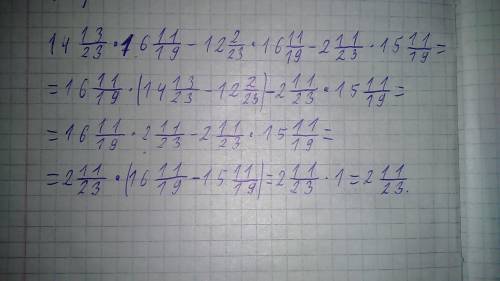 14 13/23 · 16 11/19 - 12 2/23 · 16 11/19 - 2 11/23 · 15 11/19 =
= 16 11/19 · (14 13/23 - 12 2/23) - 2 11/23 · 15 11/19 =
= 16 11/19 · 2 11/23 - 2 11/23 · 15 11/19 =
= 2 11/23 · (16 11/19 - 15 11/19) = 2 11/23 · 1 = 2 11/23.